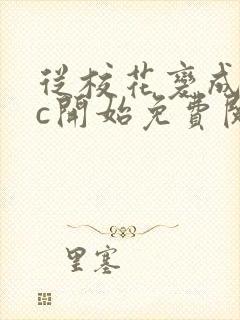 從校花變成
c開始免費閱
里塞